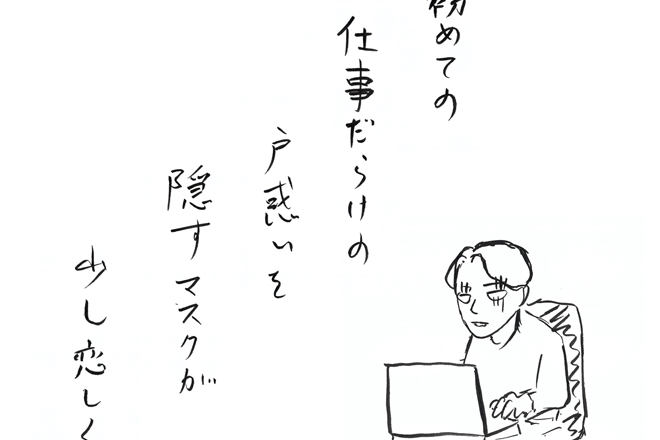 初めての
仕事だらけの
戸惑いを
隠すマスクが
少し恋しく